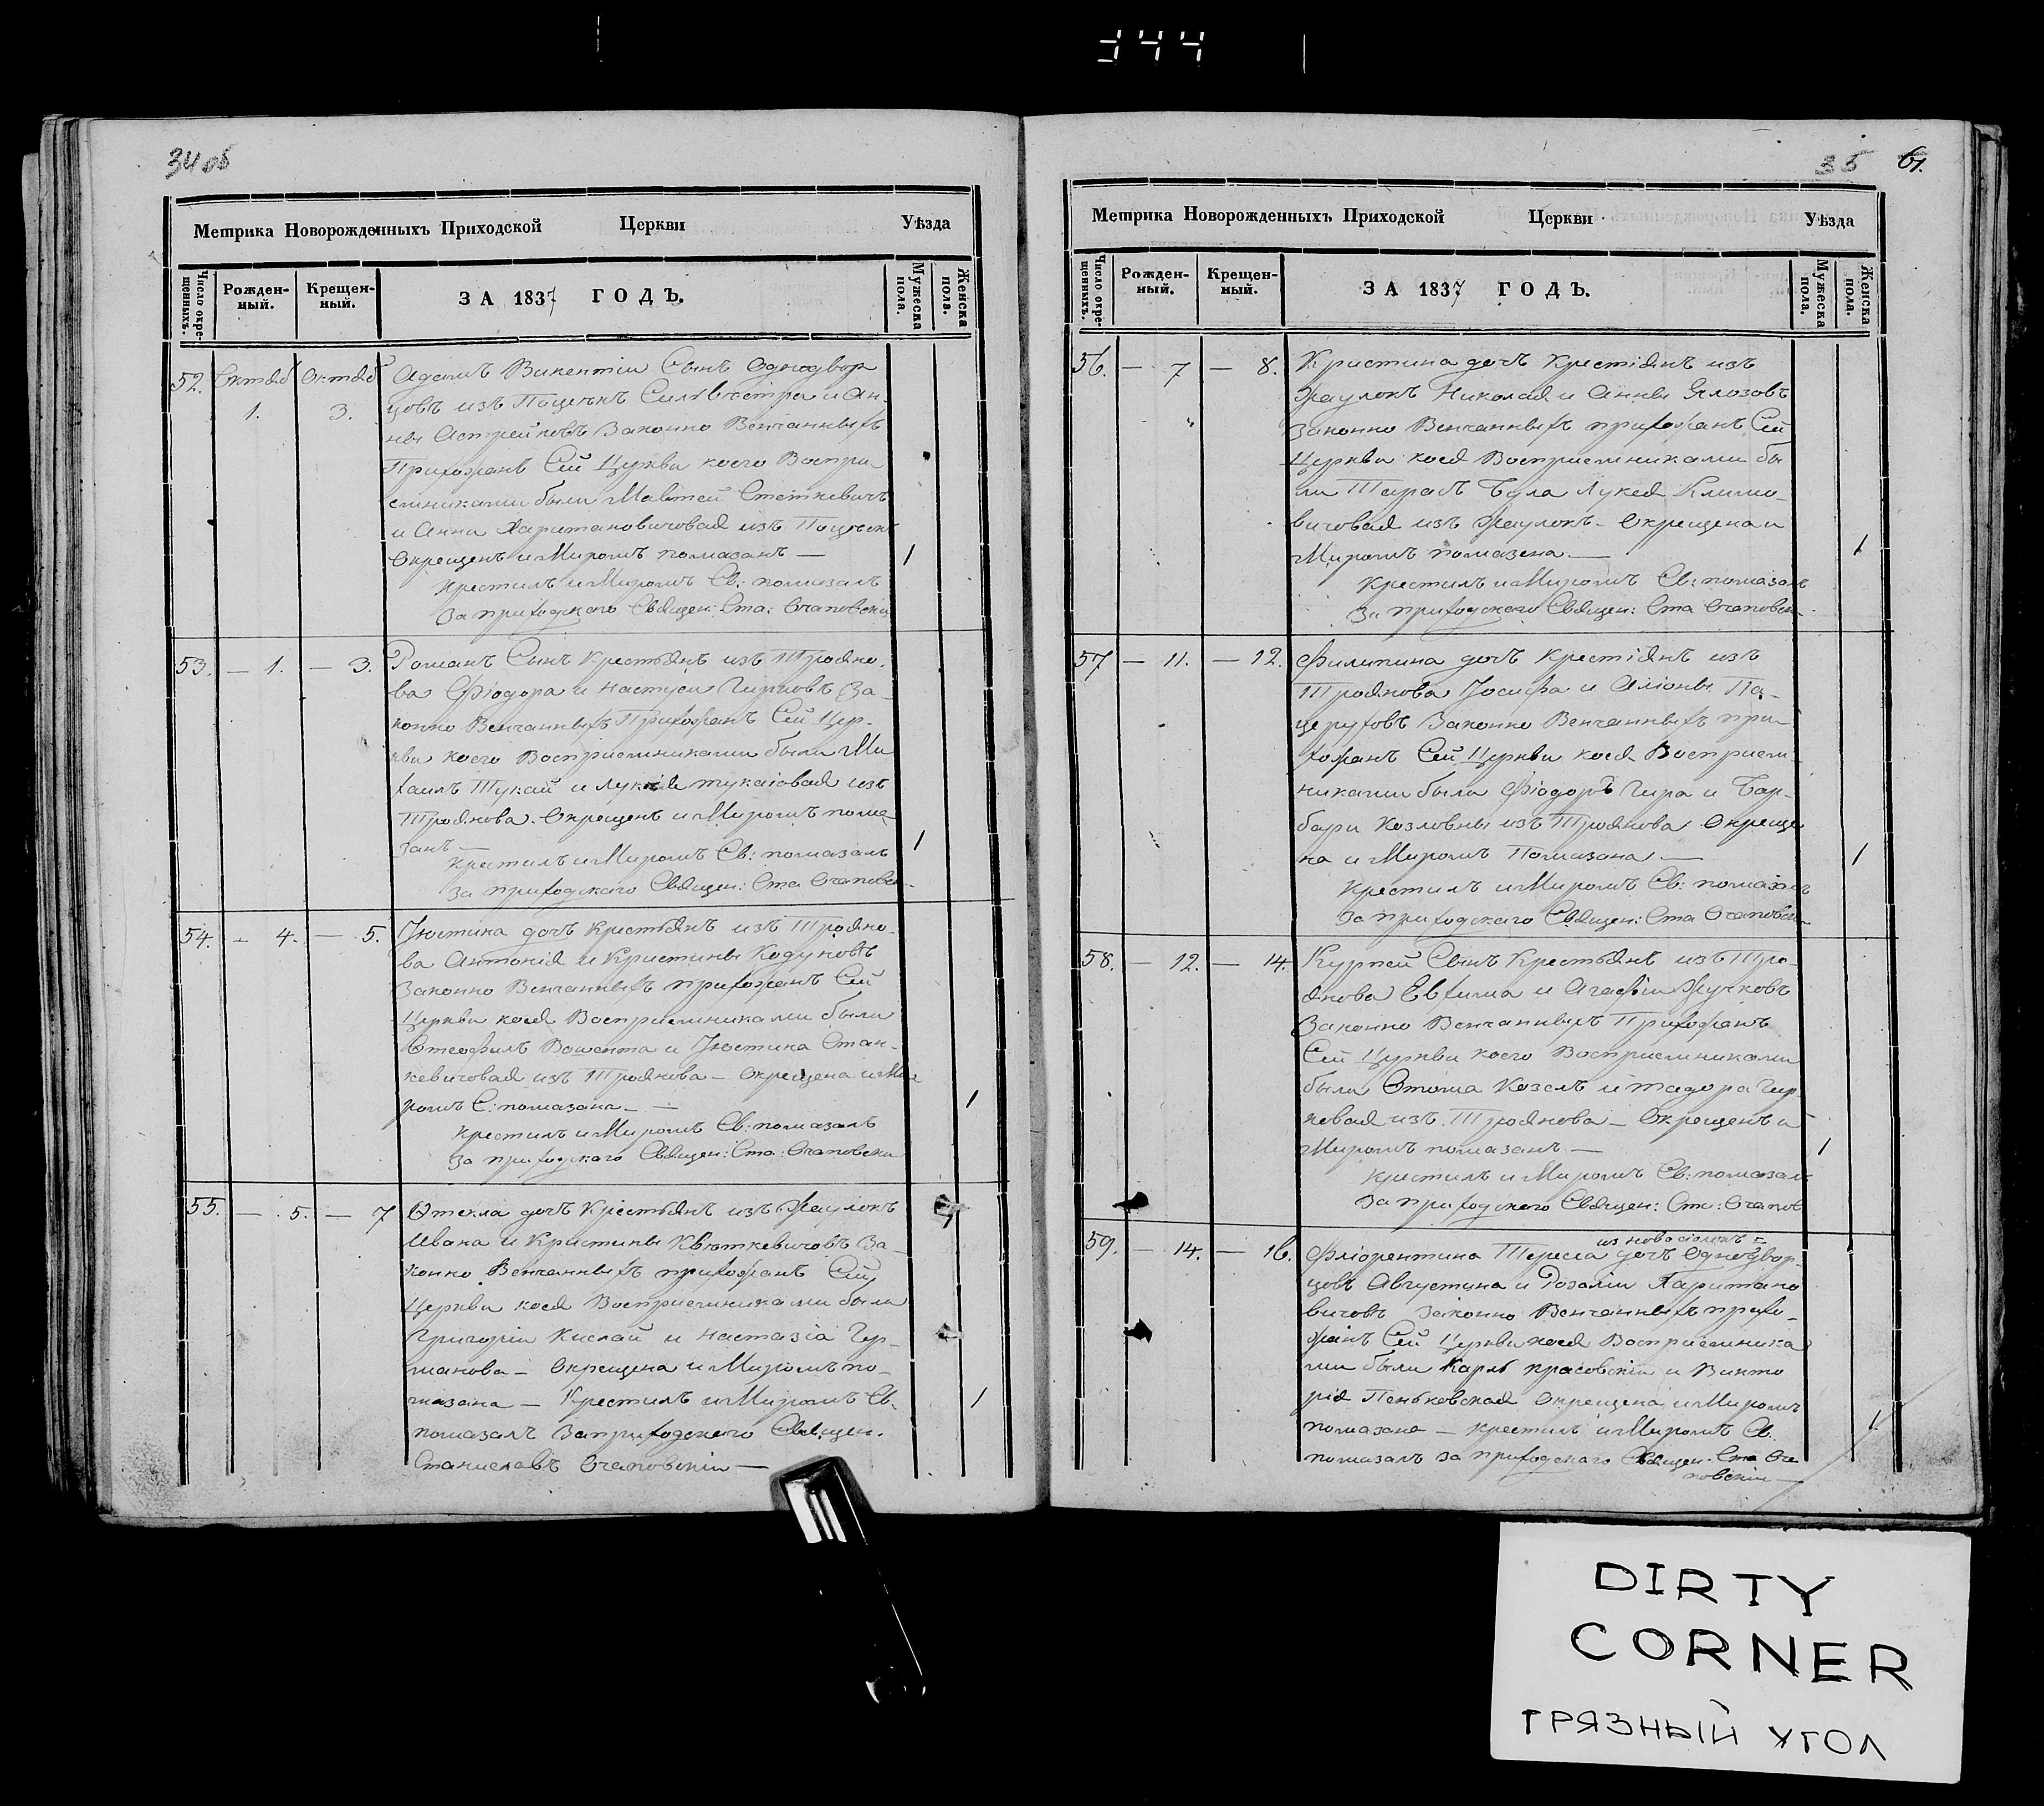 344
34 об
Метрика Новорожденныхъ Приходской Церкви Уѣзда
Число окрещенныхъ.
Рожденный.
Крещенный.
ЗА 1837 ГОДЪ.
Мужеска пола.
Женска пола.
52. Октяб 1. Октяб 3.
Адамъ Викентіи Сынъ Однодвор
цовъ изъ Поцеекъ Сильвестра и Ан-
ны Астрейковъ Законно Венчанныхъ
Прихожанъ Сей Церкви коего Воспри
емниками были Матей Стеткевичъ
и Анна Харитановичовая изъ
Окрещенъ и Миромъ помазанъ — 1
Крестилъ и Миромъ Св: помазалъ
За приходского Священ: Ста: Очаповскій
53. — 1. — 3.
Романъ Сынъ Крестьянъ изъ Трояно-
ва Фіодора и Настуси Гирковъ За-
конно Венчанныхъ Прихожанъ Сей Цер-
кви коего Восприемниками были Ми
хаилъ Тукай и Лукія тукаіовая изъ
Троянова. Окрещенъ и Миромъ пома
занъ — 1
Крестилъ и Миромъ Св: помазалъ
За приходского Священ: Ста Очаповск
54. — 4. — 5.
Іюстина дочь Крестьянъ изъ Трояно-
ва Антонія и Кристины Кодуновъ
Законно Венчанныхъ прихожанъ Сей
Церкви коея Восприемниками были
Отеофилъ Вошента и Іюстина Стан-
кевичовая изъ Троянова — Окрещена и Ми
ромъ С: помазана — 1
Крестилъ и Миромъ Св: помазалъ
За приходского Священ: Ста: Очаповски
55. — 5. — 7
Отекла дочь Крестьянъ изъ Жаулокъ
Ивана и Кристины Квяткевичовъ За-
конно Венчанныхъ прихожанъ Сей
Церкви коея Восприемниками были
Григорій Кислай и Настазіа Гер-
манова — Окрещена и Миромъ по-
мазана — Крестилъ и Миромъ Св. 1
помазалъ За приходского Священ.
Станиславъ Очаповскій —
35 61.
Метрика Новорожденныхъ Приходской Церкви Уѣзда
Число окрещенныхъ.
Рожденный.
Крещенный.
ЗА 1837 ГОДЪ.
Мужеска пола.
Женска пола.
56. — 7 — 8.
Кристина дочь Крестіянъ изъ
Жаулокъ Николая и Анны Ялозовъ
Законно Венчанныхъ прихожанъ Сей
Церкви коея Восприемниками бы
ли Тарасъ Була Лукея Климо-
вичовая изъ Жаулокъ — Окрещена и
Миромъ помазена — 1
Крестилъ и Миромъ Св: помазалъ
За приходского Священ: Ста Очаповск
57 — 11. — 12.
Филипина дочь Крестіянъ изъ
Троянова Іосифа и Аліоны Па-
церуховъ Законно Венчанныхъ при-
хожанъ Сей Церкви коея Восприем
никами были Фіодоръ Гира и Бар-
бари Козловны изъ Троянова Окреще
на и Миромъ Помазана — 1
Крестилъ и Миромъ Св: помазалъ
За приходского Священ: Ста Очаповск
58. — 12. — 14.
Курпей Сынъ Крестьянъ изъ Тро-
янова Евфима и Агафіи Жучковъ
Законно Венчанныхъ Прихожанъ
Сей Церкви коего Восприемниками
были Отома Козелъ и тадора Гир
кевая изъ Троянова — Окрещенъ и
Миромъ помазанъ — 1
Крестилъ и Миромъ Св: помазалъ
За приходского Священ: Ста: Очапов
59. — 14. — 16.
из новосіолкъ =
Фліорентина Тереса дочь Однодвор-
цовъ Августина и Розаліи Харитано
вичовъ Законно Венчанныхъ прихо-
жанъ Сей Церкви коея Восприемника
ми были Карлъ Красовскій и Викто
рія Пеньковская Окрещена и Миромъ
помазана — Крестилъ и Миромъ Св. 1
помазалъ За приходского Священ. Ста Оча
повскій —
DIRTY
CORNER
ГРЯЗНЫЙ УГОЛ